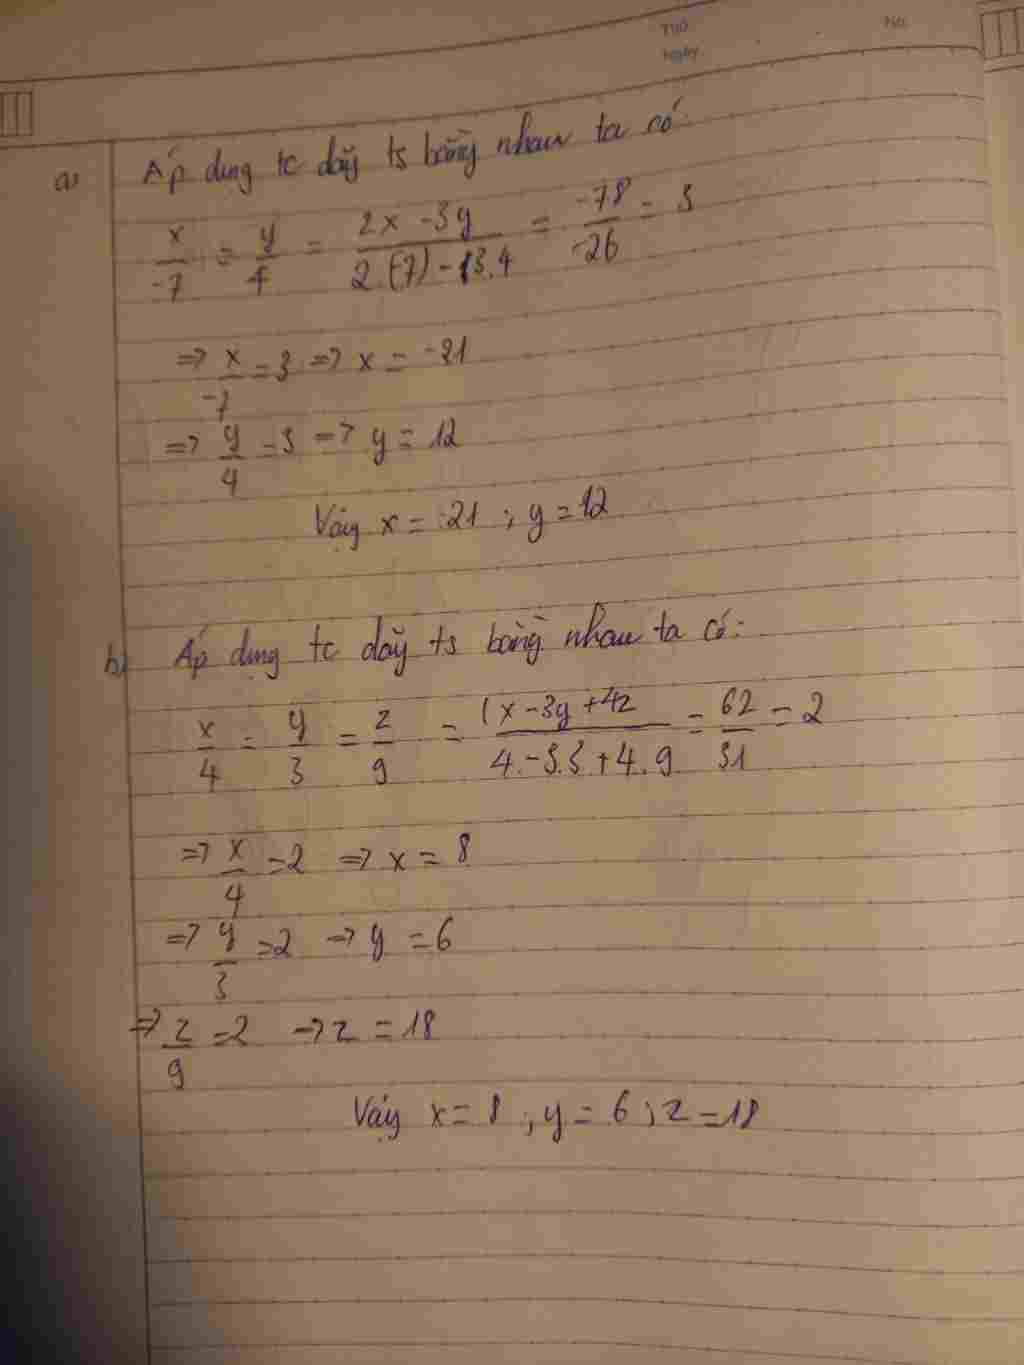 Thứ
Ngày
No.
a, Áp dụng tc dãy ts bằng nhau ta có
x/-7 = y/4 = 2x -3y / 2.(-7) - 3.4 = -78/-26 = 3
=> x/-7 = 3 => x = -21
=> y/4 = 3 => y = 12
Vậy x = -21 ; y = 12
b) Áp dụng tc dãy ts bằng nhau ta có:
x/4 = y/3 = z/9 = (x - 3y + 4z / 4.-3.3 + 4.9 = 62/31 = 2
=> x/4 = 2 => x = 8
=> y/3 = 2 => y = 6
=> z/9 = 2 => z = 18
Vậy x = 8 , y = 6 ; z = 18